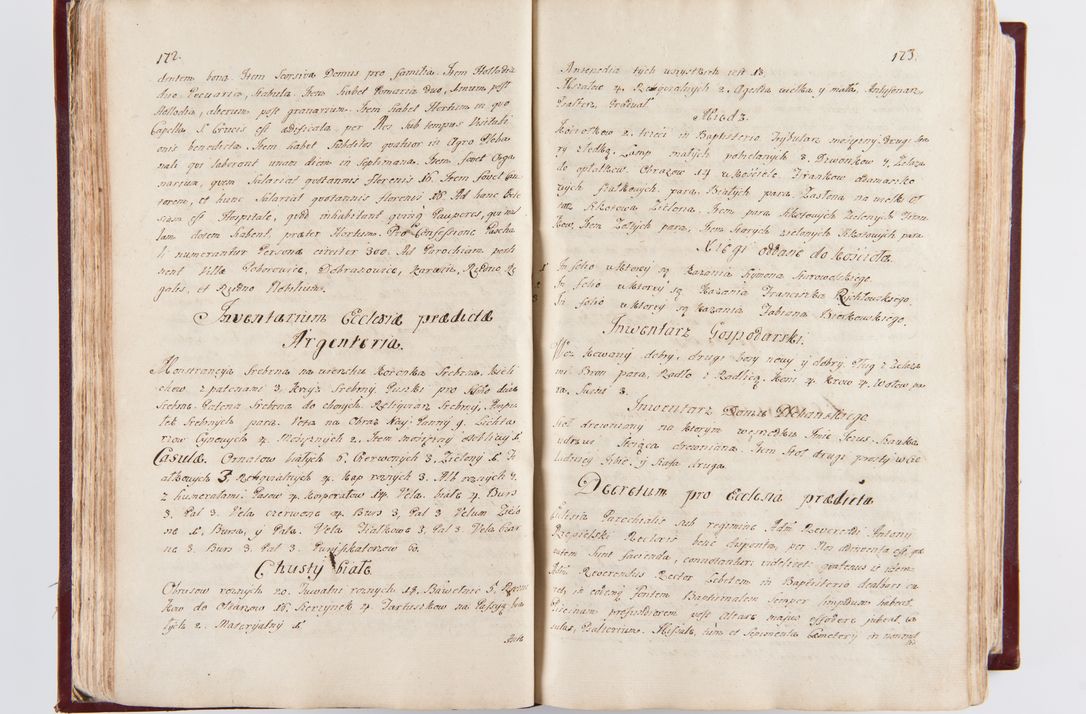 172.
dentem bona. Item Seorsiva Domus pro familia. Item Hollodia
duo Pecuaria, Stabula. Item habet Pomaria duo, Unum post
Hollodia, alterum post granarium. Item habet Hortum in quo
Capella S. Crucis est ædificata, per Nos Sub tempus Visitati
onis benedicta. Item habet Subditos quatuor in Agro Pleba
nali qui laborant unam diem in Septimana. Item fovet Orga
narium, quem Salariat quotannis florenis 16. Item fovet Can
torem, et hunc Salariat quotannis florenis 16. Ad hanc Eccle
siam est Hospitale, quod inhabitant quinq Pauperes, qui nul
lam dotem habent, præter Hortum. Pro Confessione Pascha
li numerantur Persona circiter 300. Ad Parochiam perti
nent Villæ Poborowice, Dobranowice, Karwin, Rudno Re
galis, et Rudno Nobilium.
Inventarium Ecclesiæ prædictæ
Argenteria.
Monstrancya Srebrna na wierzchu Koronka Srebrna. Kieli
chow z patenami 3. Krzyż Srebrny. Puszki pro duæ
Srebrna. Patena Srebrna do chorych. Reliqwiarz Srebrny, Ampu
łek Srebrnych para. Vota na Obraz Nay: Panny 9. Lichta
rzow Cynowych 4. Mosiężnych 2. Item mosiężny stoliczny 1.
Casulæ. Ornatow białych 5. Czerwonych 3. Zielony 1. Fi
ałkowych 3. Requialnych 4. Kap roznych 3. Alb roznych 7.
z humerałami Pasow 4. Korporałow 14. Vela białe 4. Burs
3. Pal 3. Vela czerwone 4. Burs 3. Pal 3. Velum Zielo
ne 1. Bursa, y Pala. Vela Fiałkowe 3. Pal 3. Vela Czar
ne 3. Burs 3. Pal 3. Puryfikaterzow 60.
Chusty białe
Obrusow roznych 20. Tuwalni roznych 14. Bawełnic 5. Ręczni
kow do Ołtarzow 16. Sierzynek 4. Fartuszkow na Passye bia
łych 2. Materyalny 1.
Ante

173.
Antepedia tych wszystkich iest 13.
Mszałow 4. Requialnych 2. Agenda wielka y mała, Antyfonarz,
Psałterz, Graduał
Miedz.
Kociołkow 2. trzeci in Baptisterio. Trybularz mosiężny, drugi sta
ry Łodką, Lamp małych pobielanych 3. Dzwonkow 7. Żelaza
do opłatkow. Obrazow 14 w Kościele. Firankow Adamaszko
wych fiałkowych para. Białych para. Zasłona na wielki Oł
tarz Kitaykowa Zielona. Item para Kitaykowych Zielonych Firan
kow, Item Zołtych para, Item Starych zielonych Kitaykowych para
Xięgi oddane do Kościoła.
1 In folio w ktorey są Kazania Szymona Starowolskiego.
2 In folio w ktorey są Kazania Franciszka Rychłowskiego.
3 In folio w ktorey są Kazania Fabiana Birkowskiego.
Inwentarz Gospodarski.
Woz Kowany dobry, drugi bosy nowy y dobry. Pług z żelaza
mi Bron para, Radło z Radlicą. Koni 4. Krow 4. Wołow pa
ra. Swini 3.
Inwentarz Domu Plebanskiego
Stoł drewniany na ktorym wpośrodku Imie Jezus. Szafka
w drzwi Stoiąca drewniana. Item Stoł drugi prosty w Cze
ladney Izbie y Szafa druga.
Decretum pro Ecclesia prædicta
Ecclesia Parochialis sub regimine Admi Reverendi Antony
Rzepielski Rectoris bene disposita, per Nos adinventa est, quæ
autem sunt facienda, connotantur videlicet: quatenus is idem
Admi Reverendus Rector Lebetem in Baptisterio dealbari cu
ret, in eodemq fontem Baptismalem Semper limpidum habeat.
Piscinam profundiorem post altare majus effodere jubeat, Ca
sulas, Psalterium, Missale, tum et Sepimenta Cemeterij in nonnul